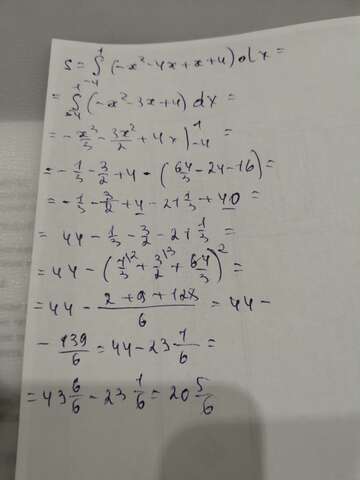 S = ∫₋₄¹ (-x² - 4x + x + 4) dx =
= ∫₋₄¹ (-x² - 3x + 4) dx =
= -x³/3 - 3x²/2 + 4x)|₋₄¹ =
= -1/3 - 3/2 + 4 - (64/3 - 24 - 16) =
= -1/3 - 3/2 + 4 - 21 1/3 + 40 =
= 44 - 1/3 - 3/2 - 21 1/3 =
= 44 - (1/3^12 + 3/2^13 + 64/3)^2 =
= 44 - (2 + 9 + 128)/6 = 44 -
- 139/6 = 44 - 23 1/6 =
= 43 6/6 - 23 1/6 = 20 5/6